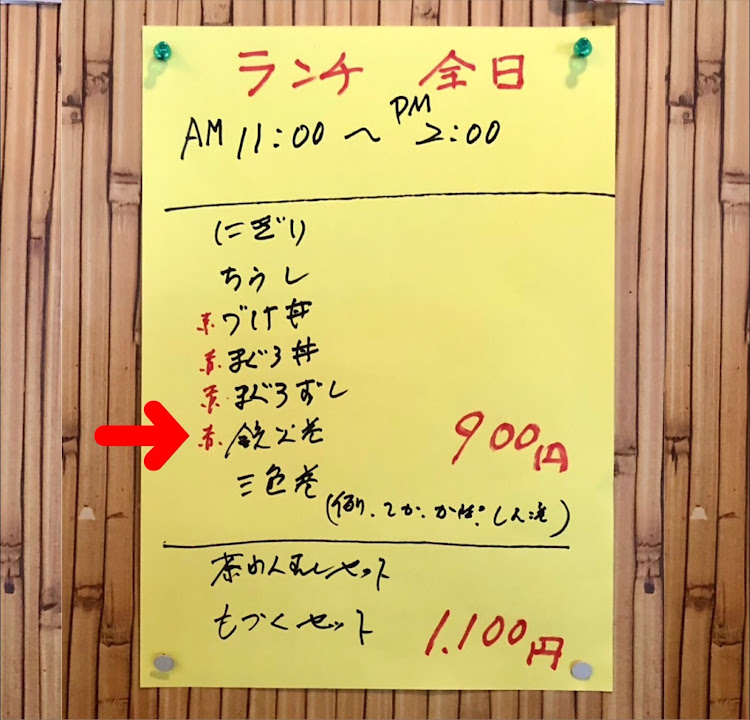 ランチ 全日
AM 11:00 〜 PM 2:00
にぎり
ちらし
赤. づけ丼
赤. まぐろ丼
赤. まぐろずし
赤. 鉄火巻
900円
三色巻
(例.てか.かぱ.しん巻)
茶わんむしセット
もづくセット
1.100円